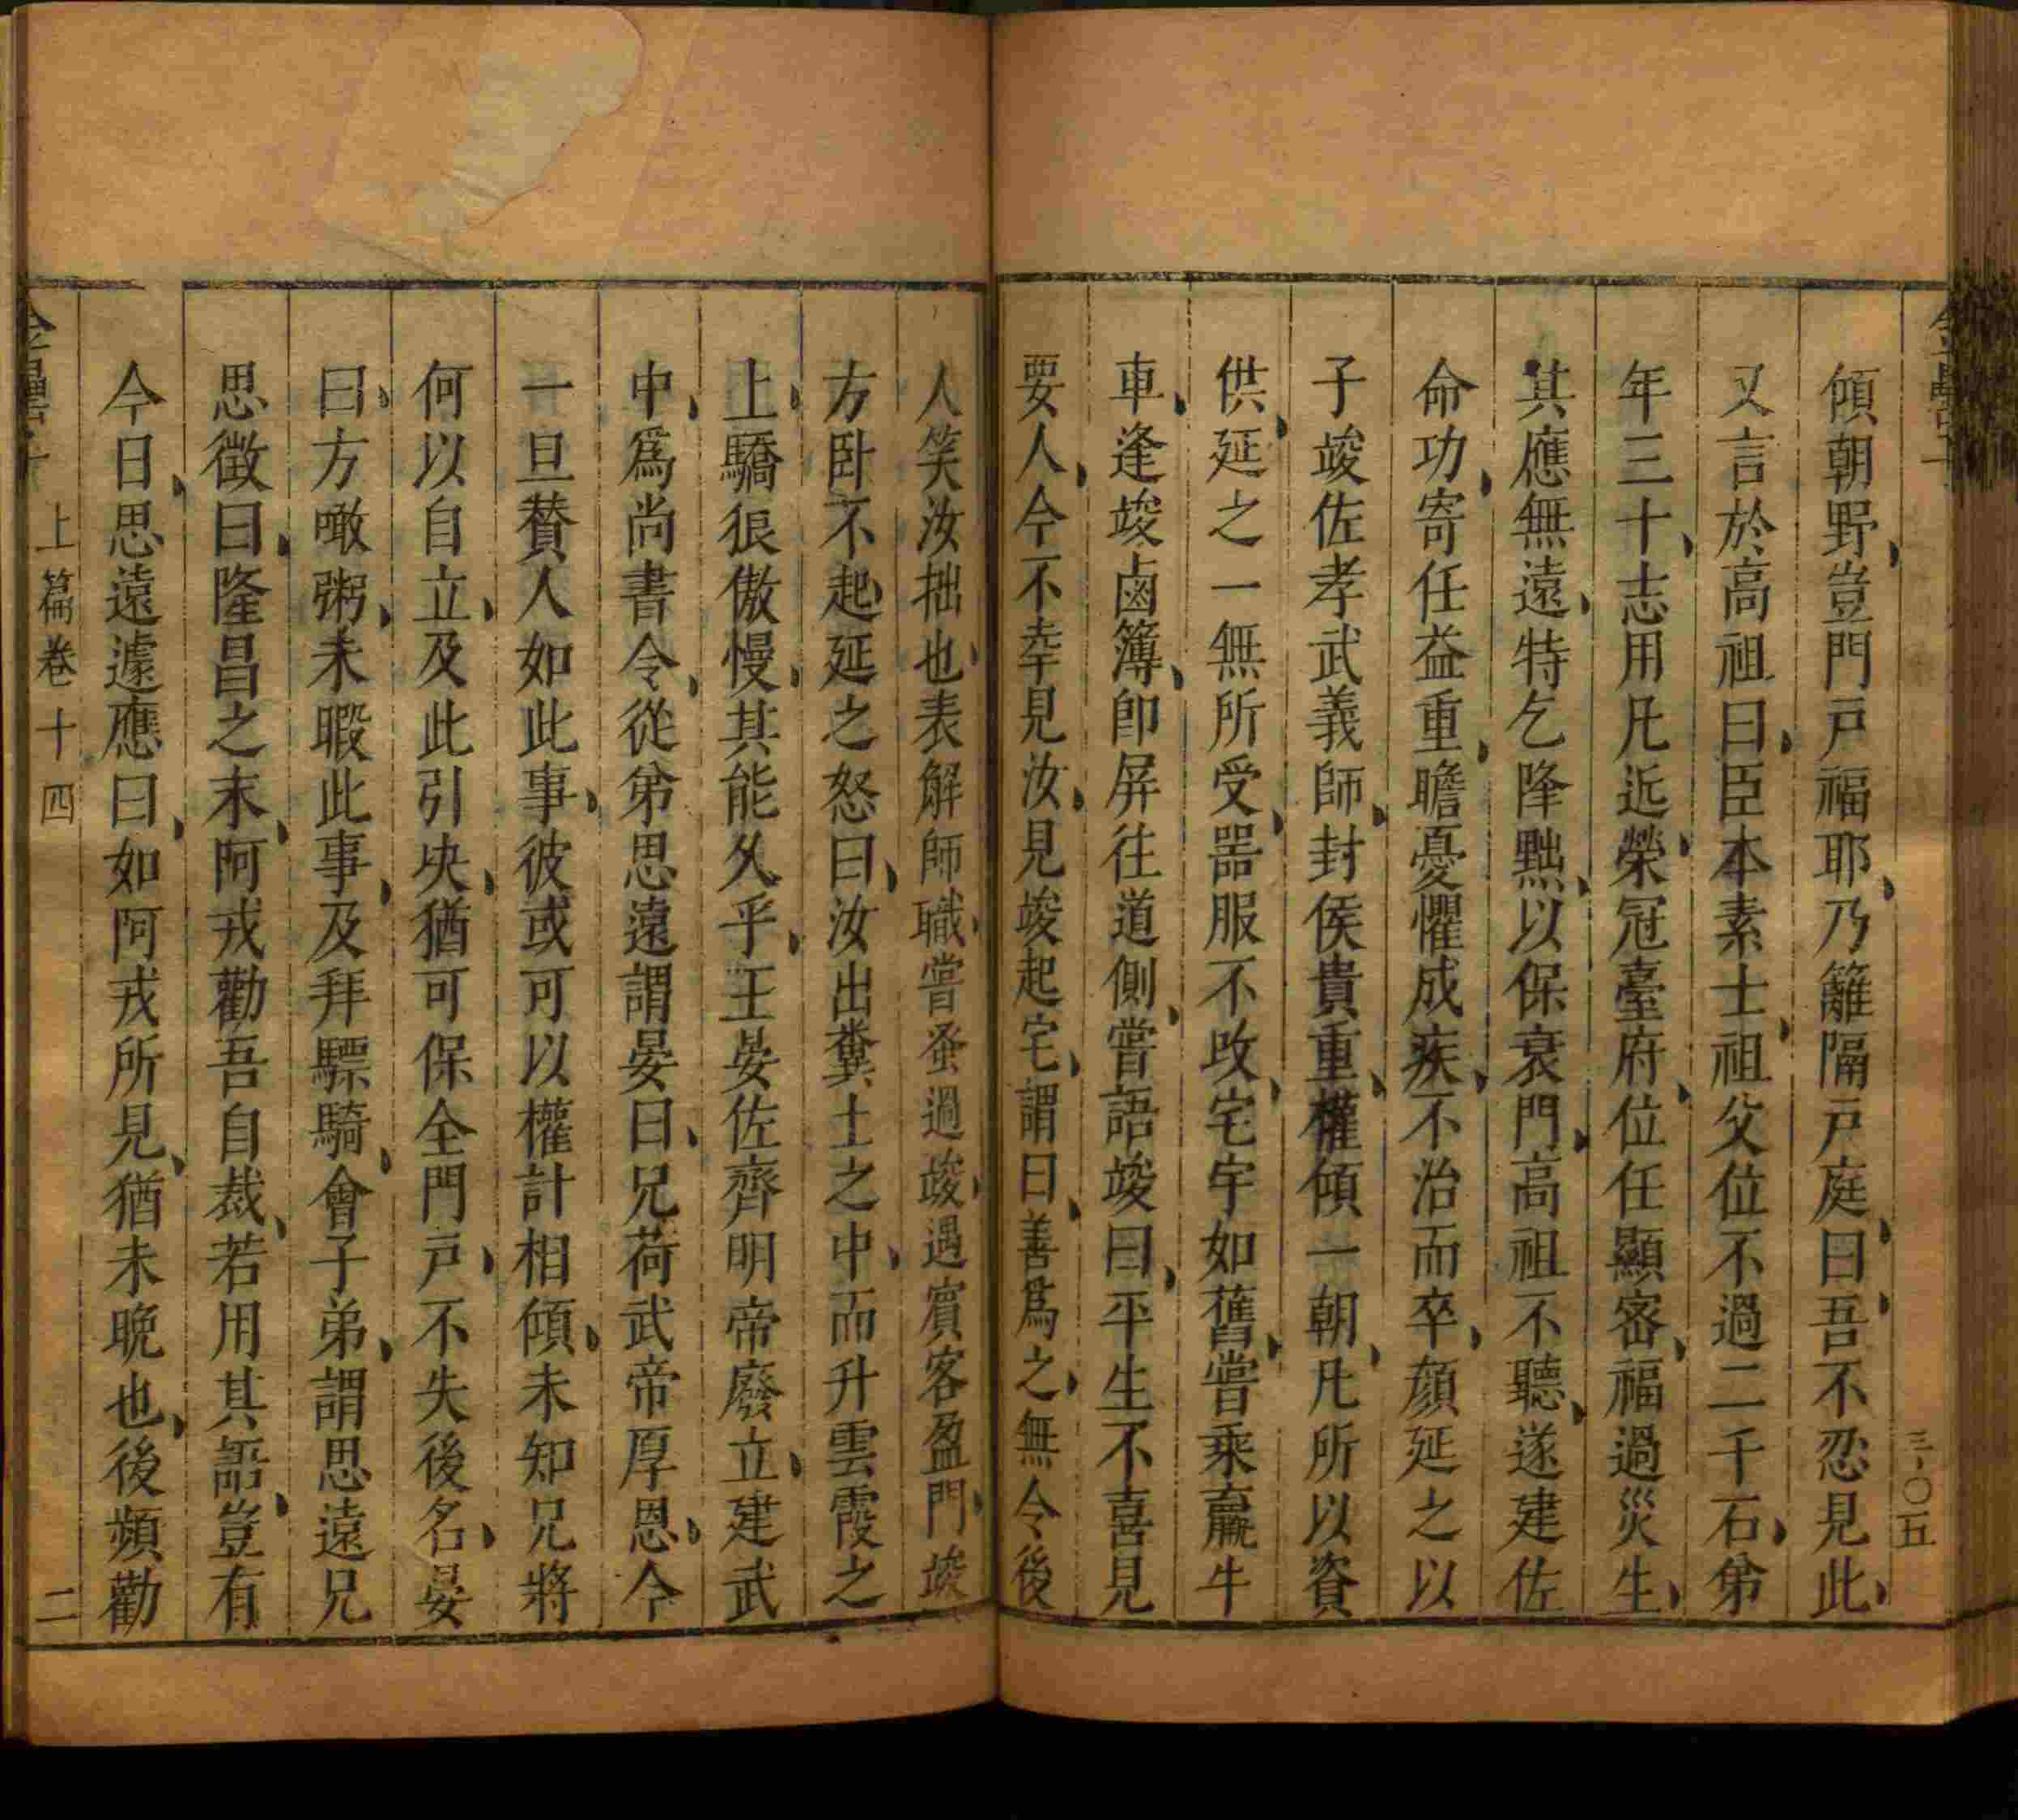 三〇五
傾朝野豈門戶福耶乃籬隔戶庭曰吾不忍見此
又言於高祖曰臣本素士祖父位不過二千石弟
年三十志用凡近榮冠臺府位任顯宻福過災生
其應無遠特乞降黜以保衰門高祖不聽遂建佐
命功寄任益重瞻憂懼成疾不治而卒顏延之以
子竣佐孝武義師封侯貴重權傾一朝凡所以資
供延之一無所受噐服不改宅宇如舊嘗乘羸牛
車逢竣鹵簿卽屏往道側嘗語竣曰平生不喜見
要人今不幸見汝見竣起宅謂曰善爲之無令後
人笑汝拙也表解師職嘗蚤過竣遇賓客盈門竣
方卧不起延之怒曰汝出糞土之中而升雲霞之
上驕很傲慢其能久乎王晏佐齊明帝廢立建武
中爲尚書令從弟思遠謂晏曰兄荷武帝厚恩今
一旦賛人如此事彼或可以權計相傾未知兄將
何以自立及此引决猶可保全門戶不失後名晏
曰方噉粥未暇此事及拜驃騎會子弟謂思遠兄
思徴曰隆昌之末阿戎勸吾自裁若用其語豈有
今日思遠遽應曰如阿戎所見猶未晩也後頻勸
上篇卷十四
二